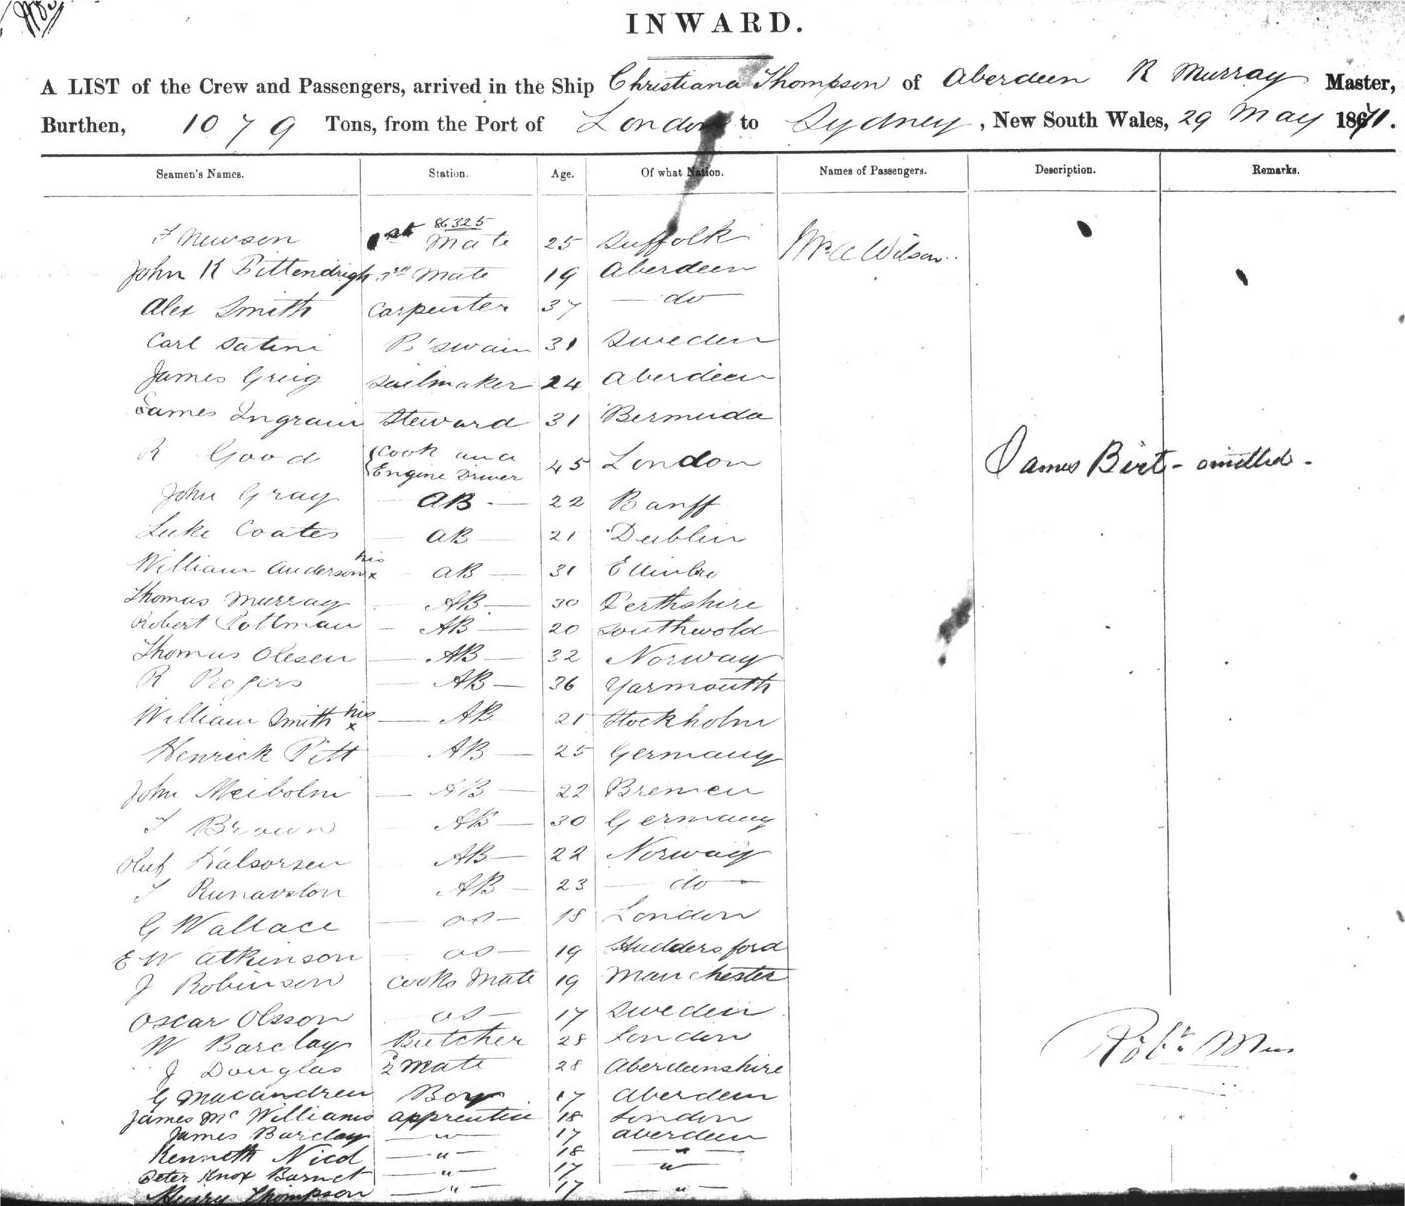 INWARD.
A LIST of the Crew and Passengers, arrived in the Ship Christiana Thompson of Aberdeen R Murray Master,
Burthen, 1079 Tons, from the Port of London to Sydney, New South Wales, 29 May 1871.
Seamen's Names. Station. Age. Of what Nation. Names of Passengers. Description. Remarks.
86325
F Newson 1st Mate 25 Suffolk Wilson
John K Pittendrigh Mate 19 Aberdeen
Alex Smith Carpenter 37 do
Carl Satini B'swain 31 Sweden
James Greig Sailmaker 24 Aberdeen
James Ingram Steward 31 Bermuda
R Good Cook and Engine Driver 45 London James Birt - omitted -
John Gray AB 22 Banff
Luke Coates AB 21 Dublin
William Anderson his x AB 31 Edinbro
Thomas Murray AB 30 Perthshire
Robert Pottman AB 20 Southwold
Thomas Olesen AB 32 Norway
R Rogers AB 36 Yarmouth
William Smith his x AB 21 Stockholm
Henrick Pitt AB 25 Germany
John Meibolm AB 22 Bremen
Brown AB 30 Germany
Oluf AB 22 Norway
AB 23 do
G Wallace os 18 London
E W Atkinson os 19 Huddersford
J Robinson Cooks Mate 19 Manchester
Oscar Olsson os 17 Sweden
W Barclay Butcher 28 London
J Douglas 2 Mate 28 Aberdeenshire
G Macandrew Boy 17 Aberdeen
James McWilliams apprentice 18 London
James Barclay " 17 Aberdeen
Kenneth Nicol " 18 "
Peter Knox Barnet " 17 "
Henry Thompson " 17 "